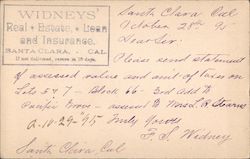 WIDNEYS'
Real Estate, Loan
and Insurance.
SANTA CLARA, - CAL
If not delivered, return in 10 days.
Santa Clara Cal
October 28th 9
Dear Sir:
Please send statement
of assessed value and amt of taxes on
Lots 5 & 7 - Block 66 - 3rd Add to
Pacific Grove - assessed to Mrs L. R. Stearns
a. 10-29-95 Truly yours
F. S. Widney
Santa Clara Cal